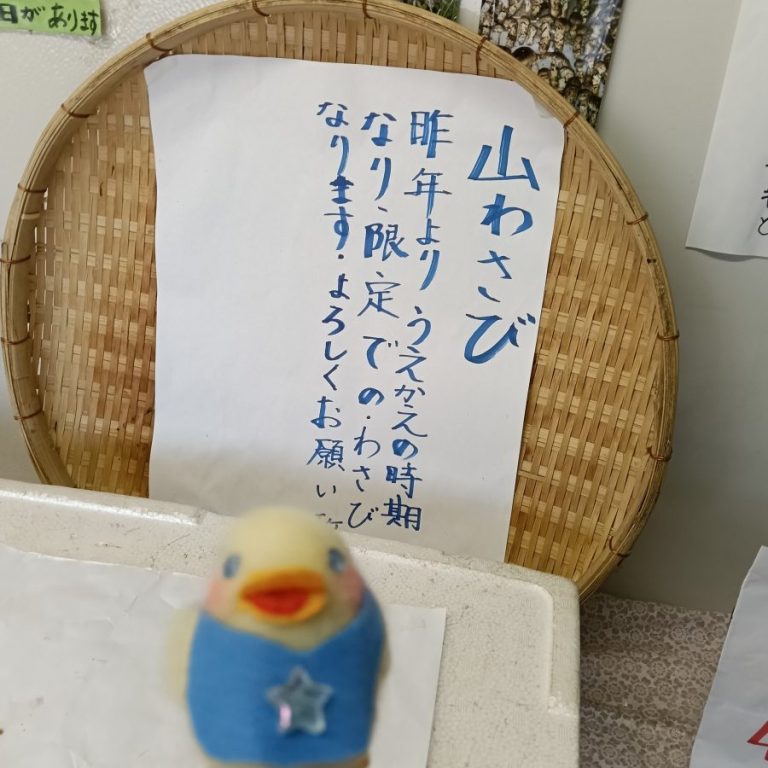 日があります
山わさび
昨年より うえかえの時期
なり、限定での・わさび
なります・よろしくお願い